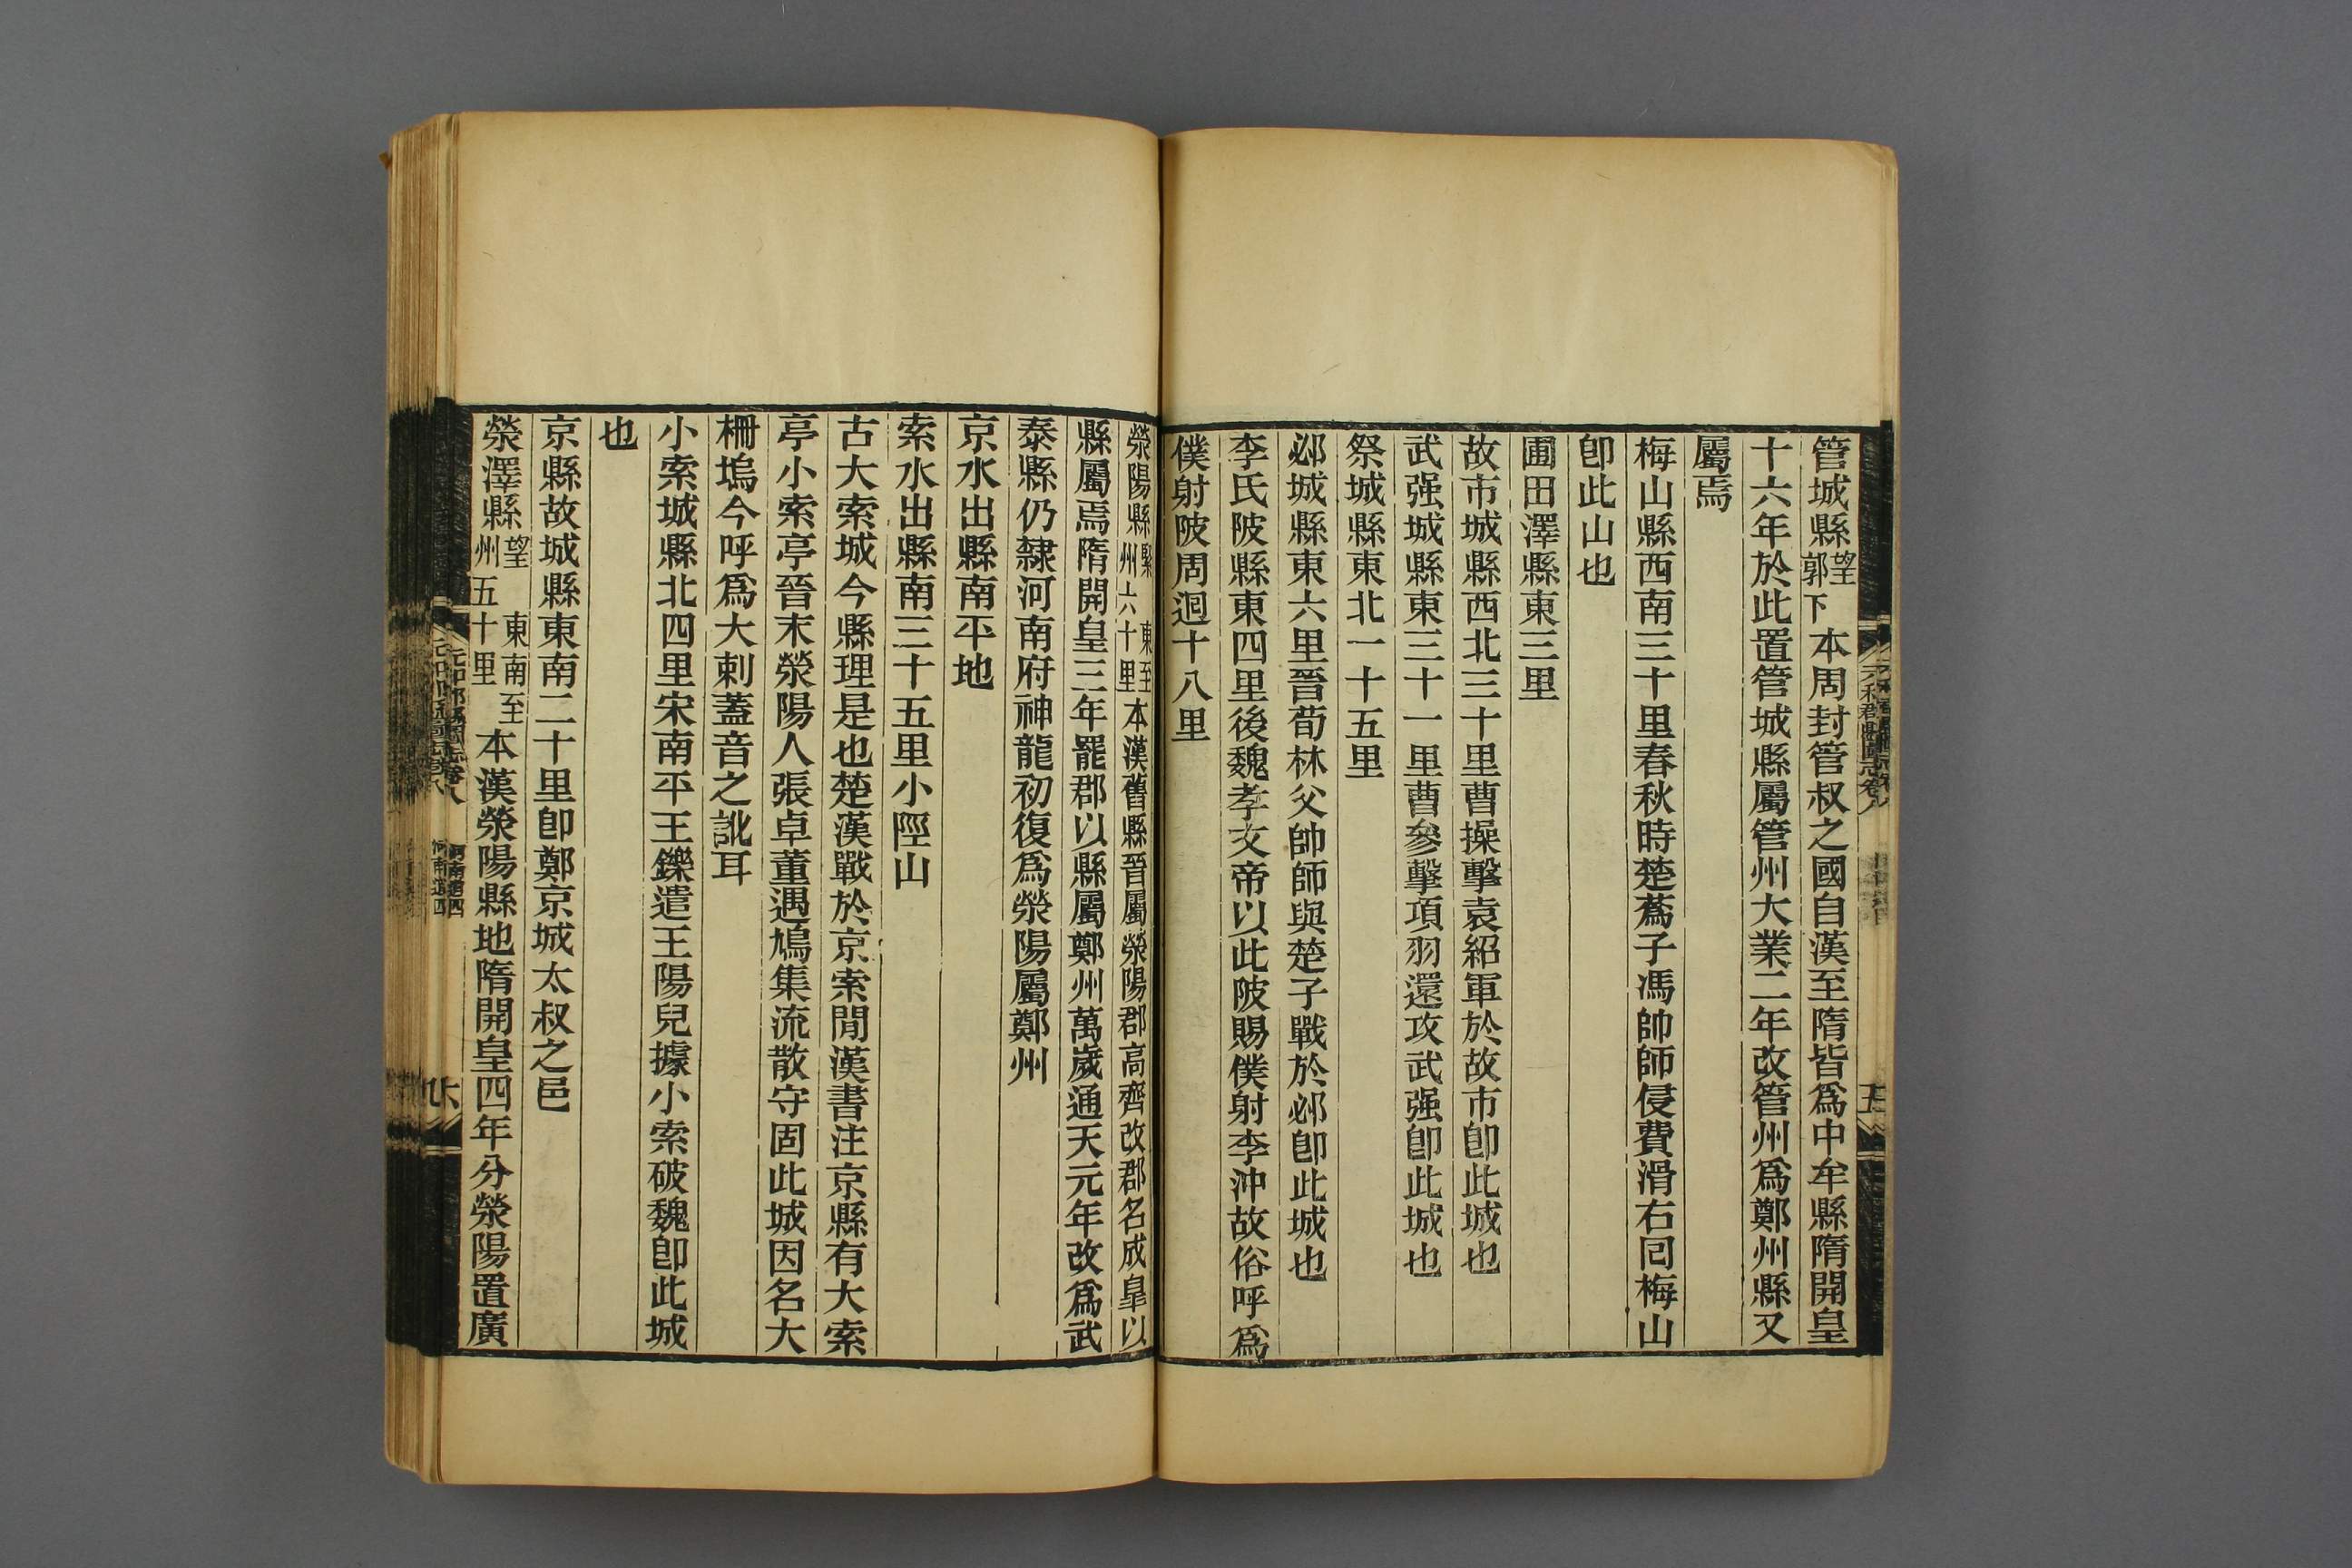 管城縣望郭下本周封管叔之國自漢至隋皆爲中牟縣隋開皇
十六年於此置管城縣屬管州大業二年改管州爲鄭州縣又
屬焉
梅山縣西南三十里春秋時楚蒍子馮帥師侵費滑右囘梅山
卽此山也
圃田澤縣東三里
故市城縣西北三十里曹操擊袁紹軍於故市卽此城也
武强城縣東三十一里曹參擊項羽還攻武强卽此城也
祭城縣東北一十五里
邲城縣東六里晉荀林父帥師與楚子戰於邲卽此城也
李氏陂縣東四里後魏孝文帝以此陂賜僕射李沖故俗呼爲
僕射陂周迴十八里
滎陽縣緊東至州六十里本漢舊縣晉屬滎陽郡高齊改郡名成皐以
縣屬焉隋開皇三年罷郡以縣屬鄭州萬歲通天元年改爲武
泰縣仍隸河南府神龍初復爲滎陽屬鄭州
京水出縣南平地
索水出縣南三十五里小陘山
古大索城今縣理是也楚漢戰於京索閒漢書注京縣有大索
亭小索亭晉末滎陽人張卓董遇鳩集流散守固此城因名大
柵塢今呼爲大剌蓋音之訛耳
小索城縣北四里宋南平王鑠遣王陽兒據小索破魏卽此城
也
京縣故城縣東南二十里卽鄭京城太叔之邑
滎澤縣望東南至州五十里本漢滎陽縣地隋開皇四年分滎陽置廣
元和郡縣圖志卷八
河南道四
六